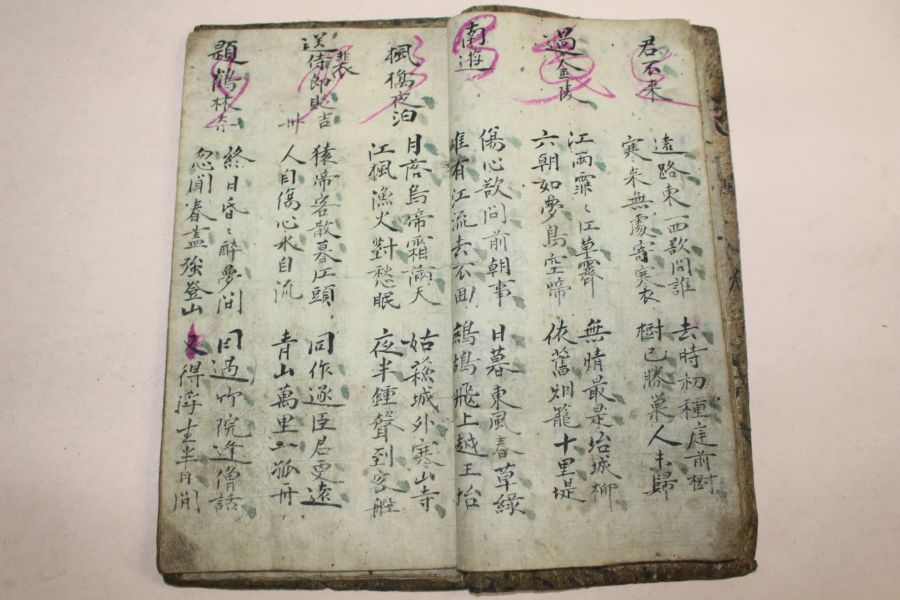 君不來
遠路東西欲問誰
寒來無處寄寒衣
去時初種庭前樹
樹已勝巢人未歸
過金陵
江雨霏〻江草齊
六朝如夢島空啼
無晴最是坮城柳
依舊烟籠十里堤
南遊
傷心欲問前朝事
惟有江流去不回
日暮東風春草綠
鷓鴣飛上越王坮
楓橋夜泊
月落烏啼霜滿天
江楓漁火對愁眠
姑蘇城外寒山寺
夜半鍾聲到客船
送裵侍郎貶吉州
猿啼客散暮江頭
人自傷心水自流
同作逐臣君更遠
青山萬里一孤舟
題鶴林寺
終日昏〻醉夢間
忽聞春盡強登山
因過竹院逢僧話
又得浮生半日閒